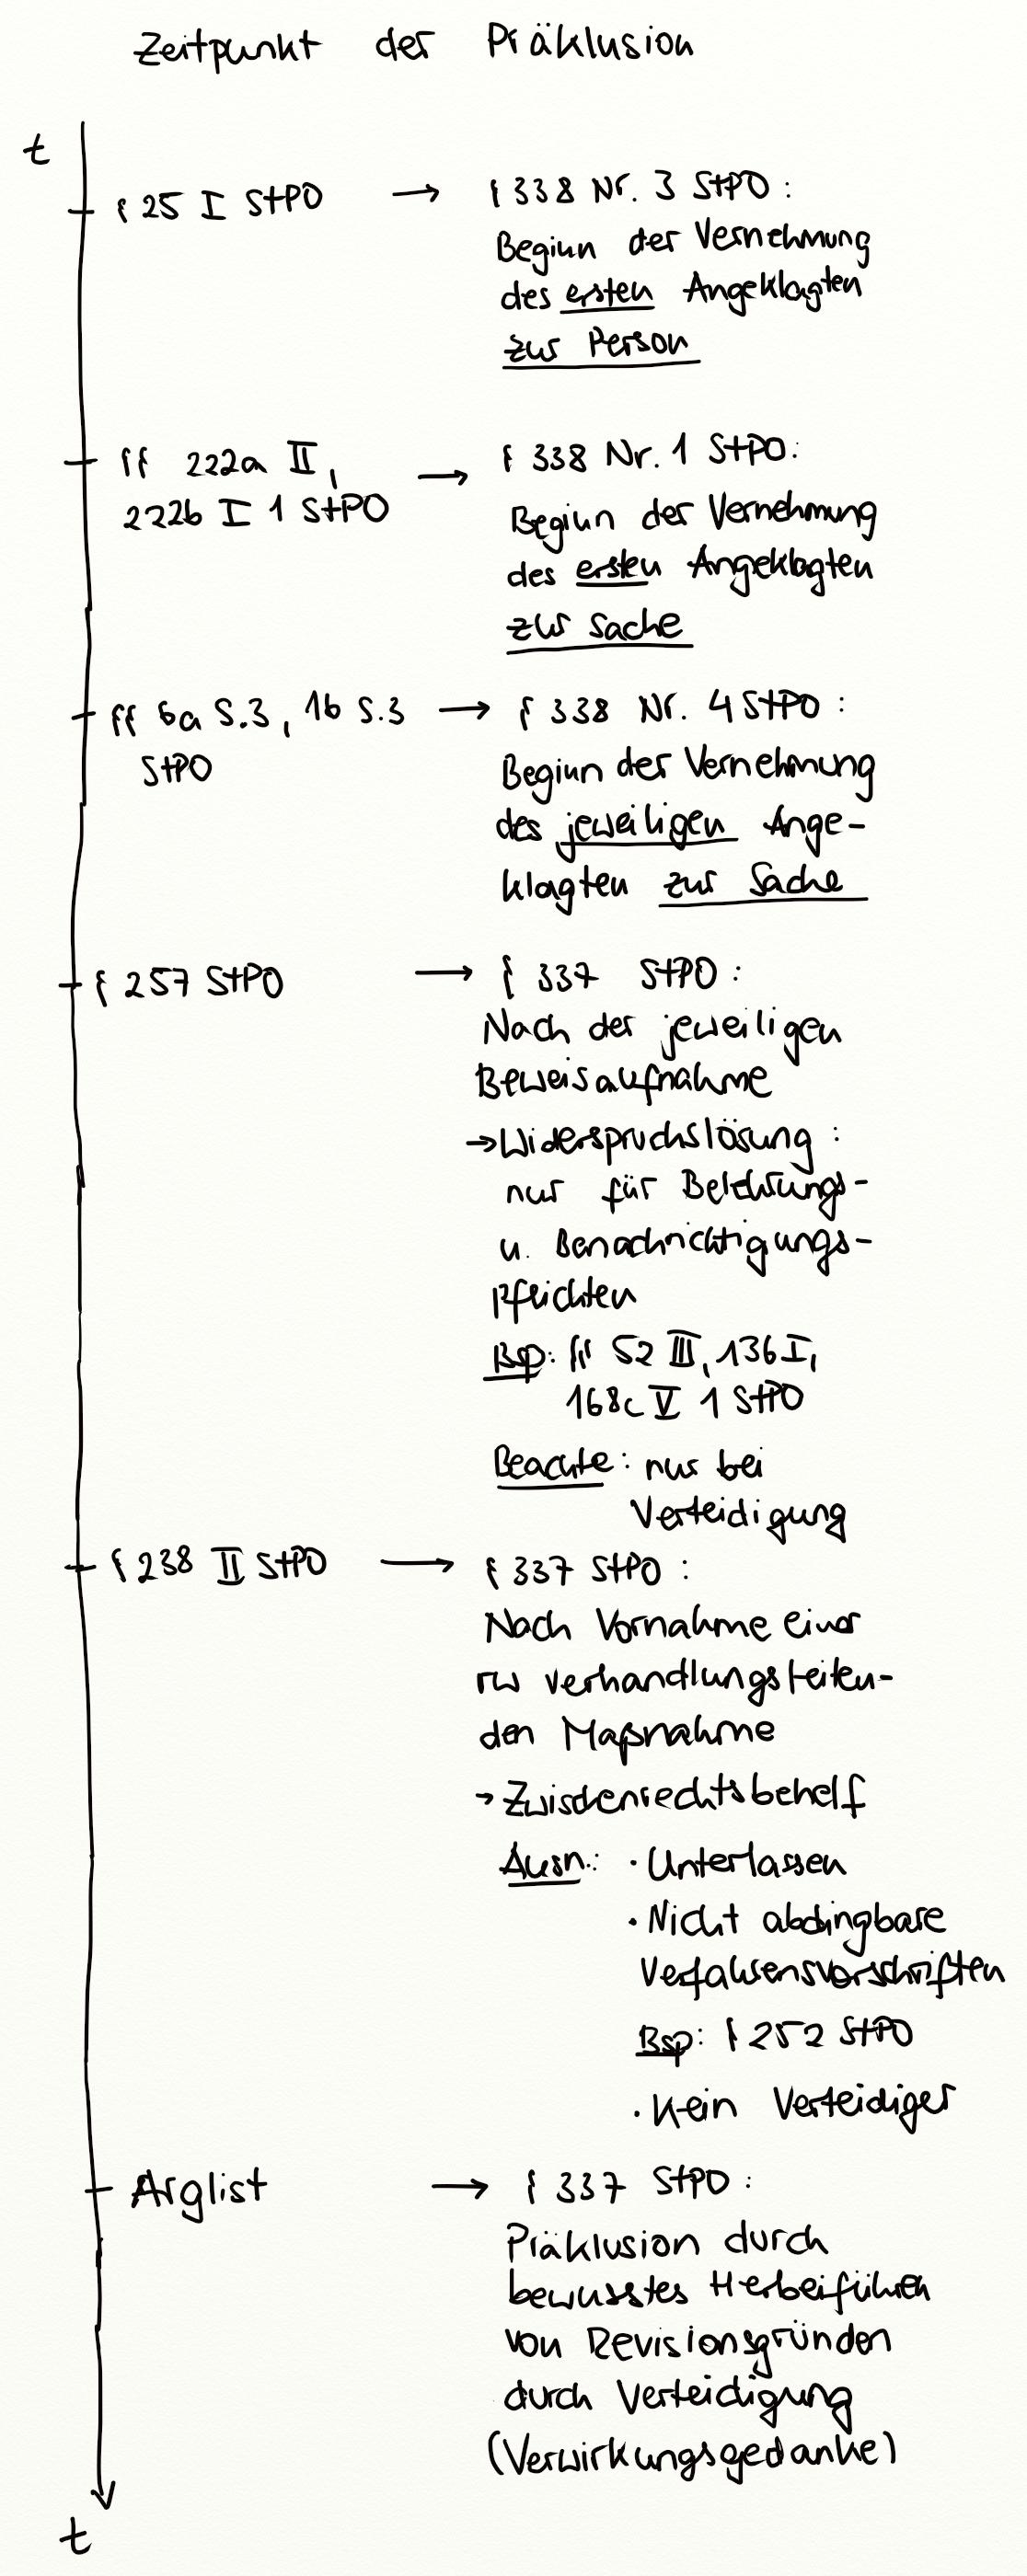 Zeitpunkt der Präklusion
t
§ 25 I StPO → § 338 Nr. 3 StPO:
Beginn der Vernehmung
des ersten Angeklagten
zur Person
§§ 222a II, → § 338 Nr. 1 StPO:
222b I 1 StPO
Beginn der Vernehmung
des ersten Angeklagten
zur Sache
§§ 6a S.3, 16 S.3 → § 338 Nr. 4 StPO:
StPO
Beginn der Vernehmung
des jeweiligen Ange-
klagten zur Sache
§ 257 StPO → § 337 StPO:
Nach der jeweiligen
Beweisaufnahme
→ Widerspruchslösung:
nur für Belehrungs-
u. Benachrichtigungs-
pflichten
Bsp: §§ 52 III, 136 I,
168c V 1 StPO
Beachte: nur bei
Verteidigung
§ 238 II StPO → § 337 StPO:
Nach Vornahme einer
rw verhandlungsleiten-
den Maßnahme
→ Zwischenrechtsbehelf
Ausn.: · Unterlassen
· Nicht abdingbare
Verfahrensvorschriften
Bsp: § 252 StPO
· Kein Verteidiger
Arglist → § 337 StPO:
Präklusion durch
bewusstes Herbeiführen
von Revisionsgründen
durch Verteidigung
(Verwirkungsgedanke)
t